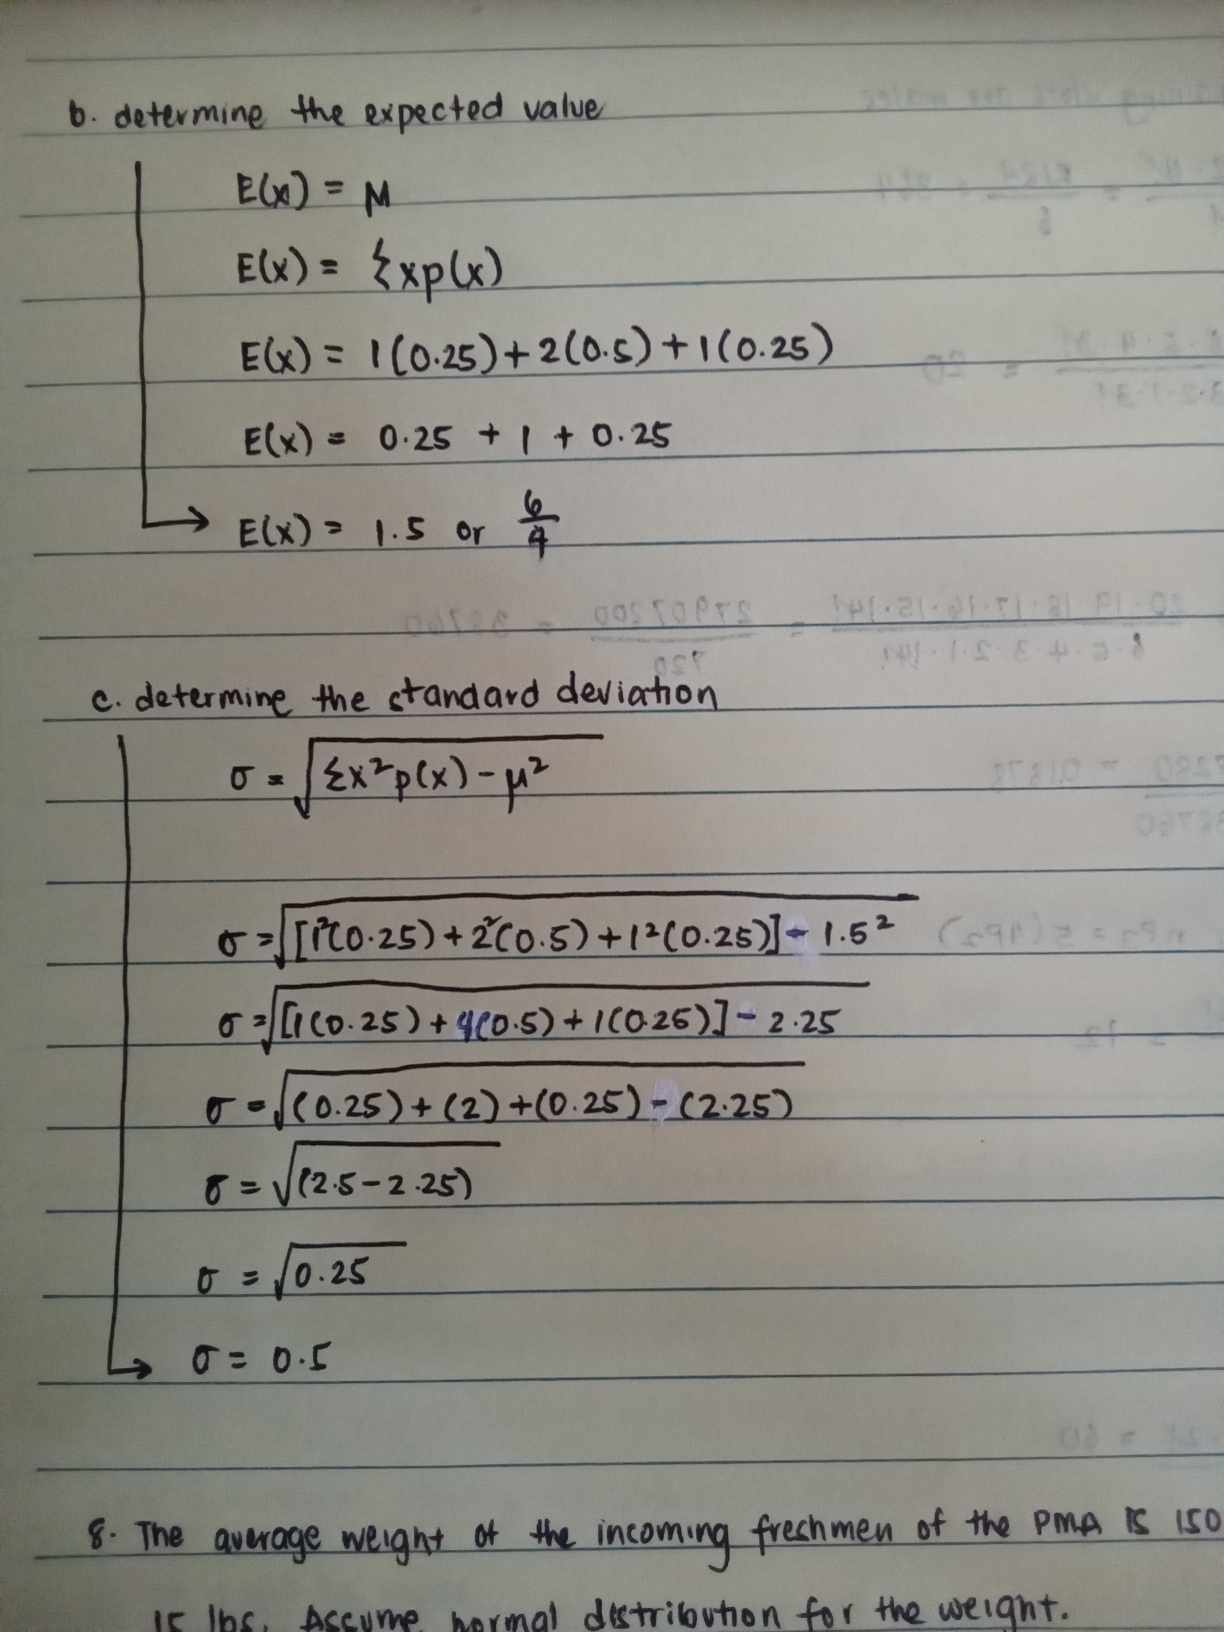 b. determine the expected value
E(x) = M
E(x) = Σxp(x)
E(x) = 1(0.25)+2(0.5)+1(0.25)
E(x) = 0.25 + 1 + 0.25
E(x) = 1.5 or 6/4
c. determine the standard deviation
σ = √Σx²p(x) - μ²
σ = √[1²(0.25)+2²(0.5)+1²(0.25)] - 1.5²
σ = √[1(0.25)+4(0.5)+1(0.25)] - 2.25
σ = √(0.25)+(2)+(0.25)-(2.25)
σ = √(2.5-2.25)
σ = √0.25
σ = 0.5
8. The average weight of the incoming freshmen of the PMA is 150
15 lbs. Assume normal distribution for the weight.